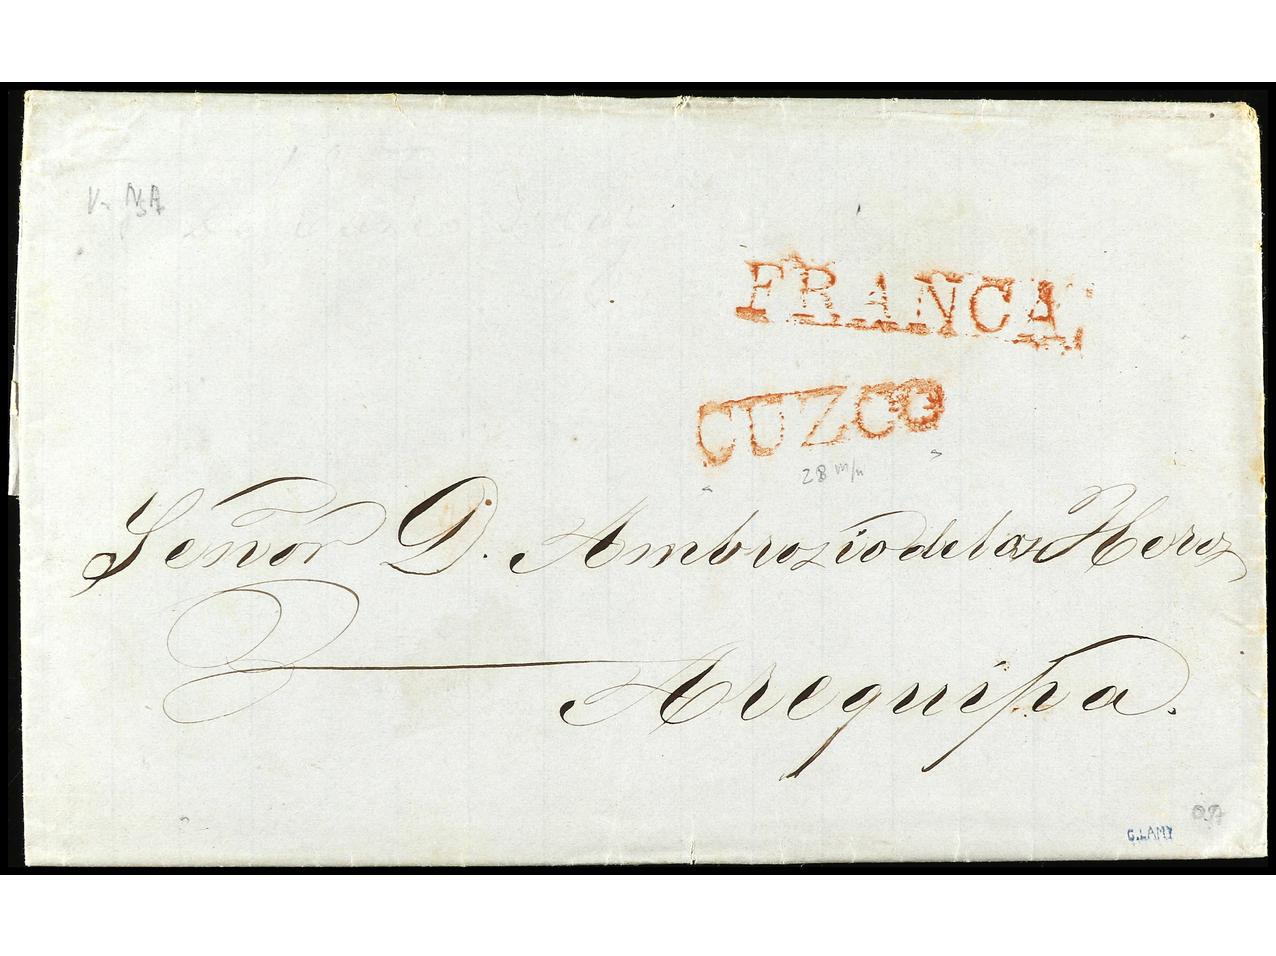 FRANCA.
CUZCO
28 m/n
Señor D. Ambrozio de las Heraz
Arequipa.
G.LAMY